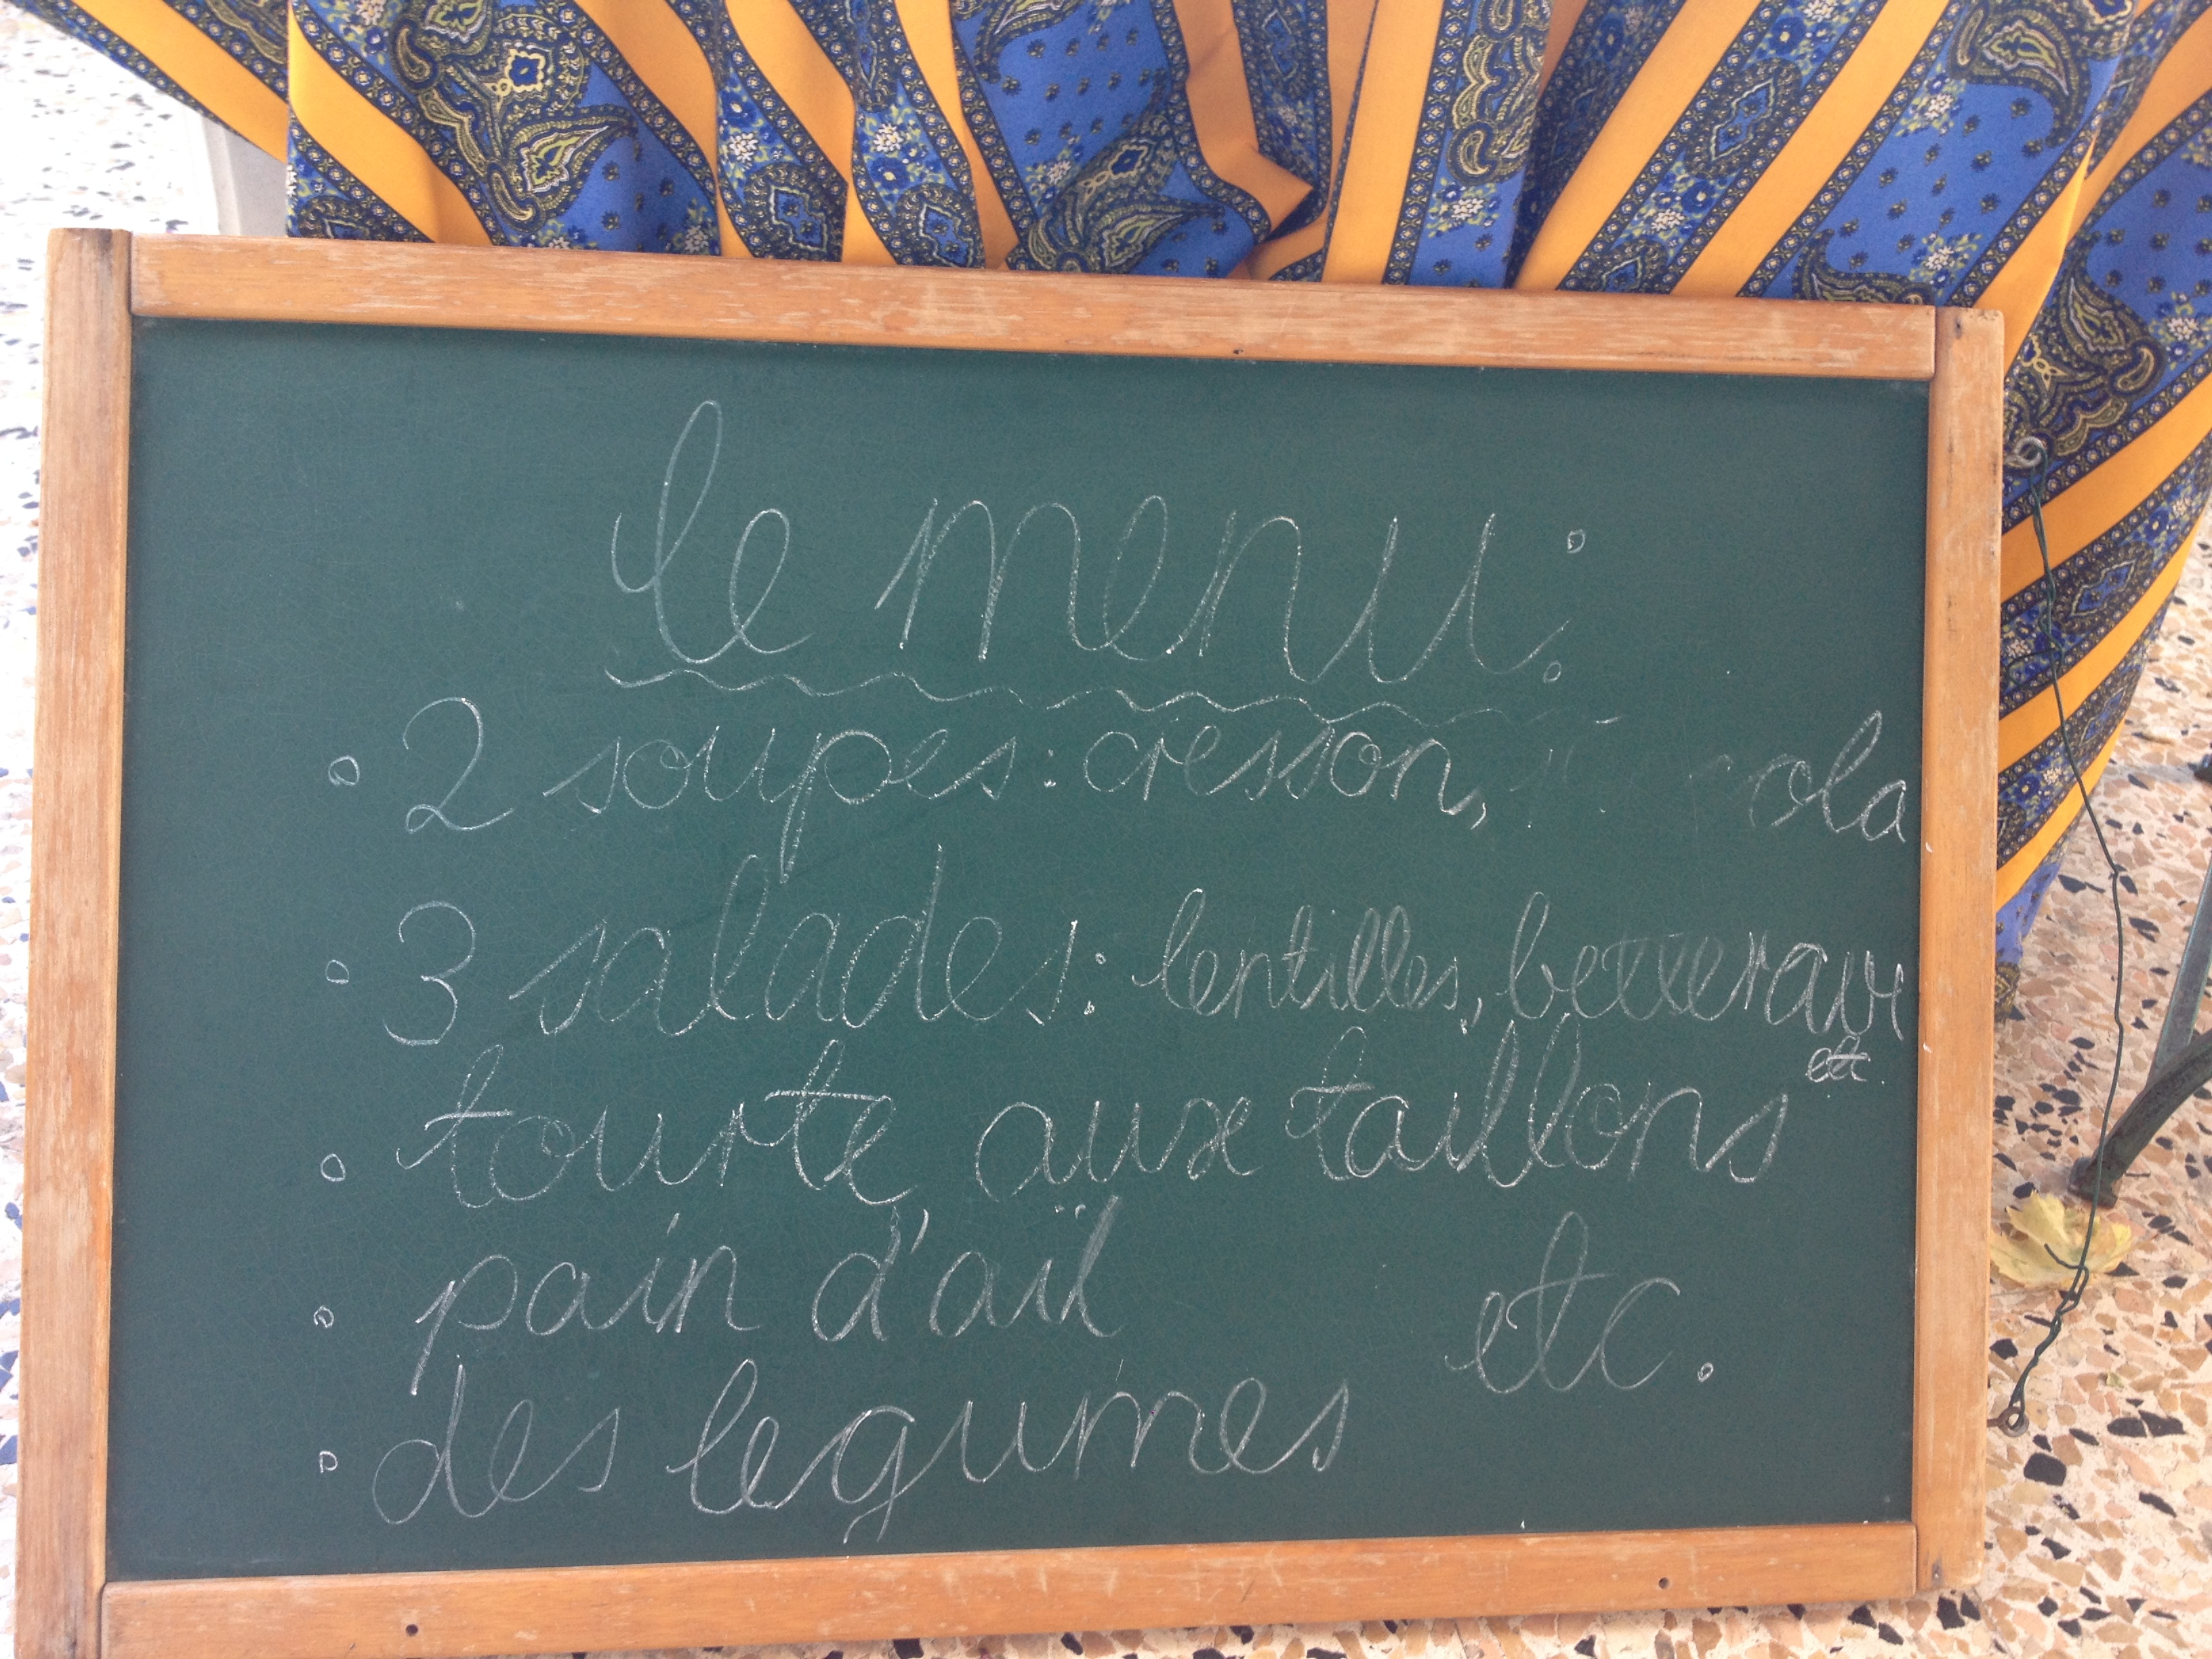 le menu:
2 soupes: cresson,
3 salades: lentilles, betterave
etc.
tourte aux taillons
pain d'aïl
etc.
des legumes